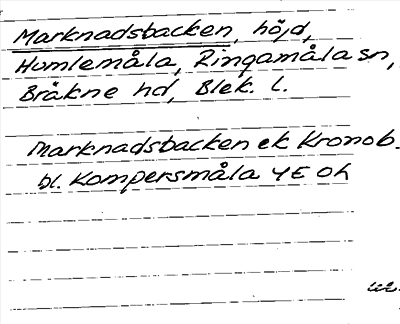 Marknadsbacken, höjd,
Humlemåla, Ringamåla sn,
Bräkne hd, Blek. l.
Marknadsbacken ek Kronob.
bl. Kompersmåla 4E Oh